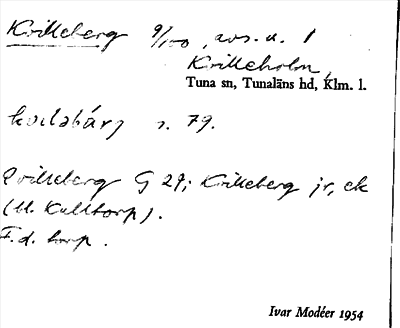 Krilleberg 9/100, avs. u. 1
Krilleholm,
Tuna sn, Tunaläns hd, Klm. l.
s. 79.
Krilleberg G 29; Krilleberg jr, ek
(U. Kulltorp).
F.d. torp.
Ivar Modéer 1954